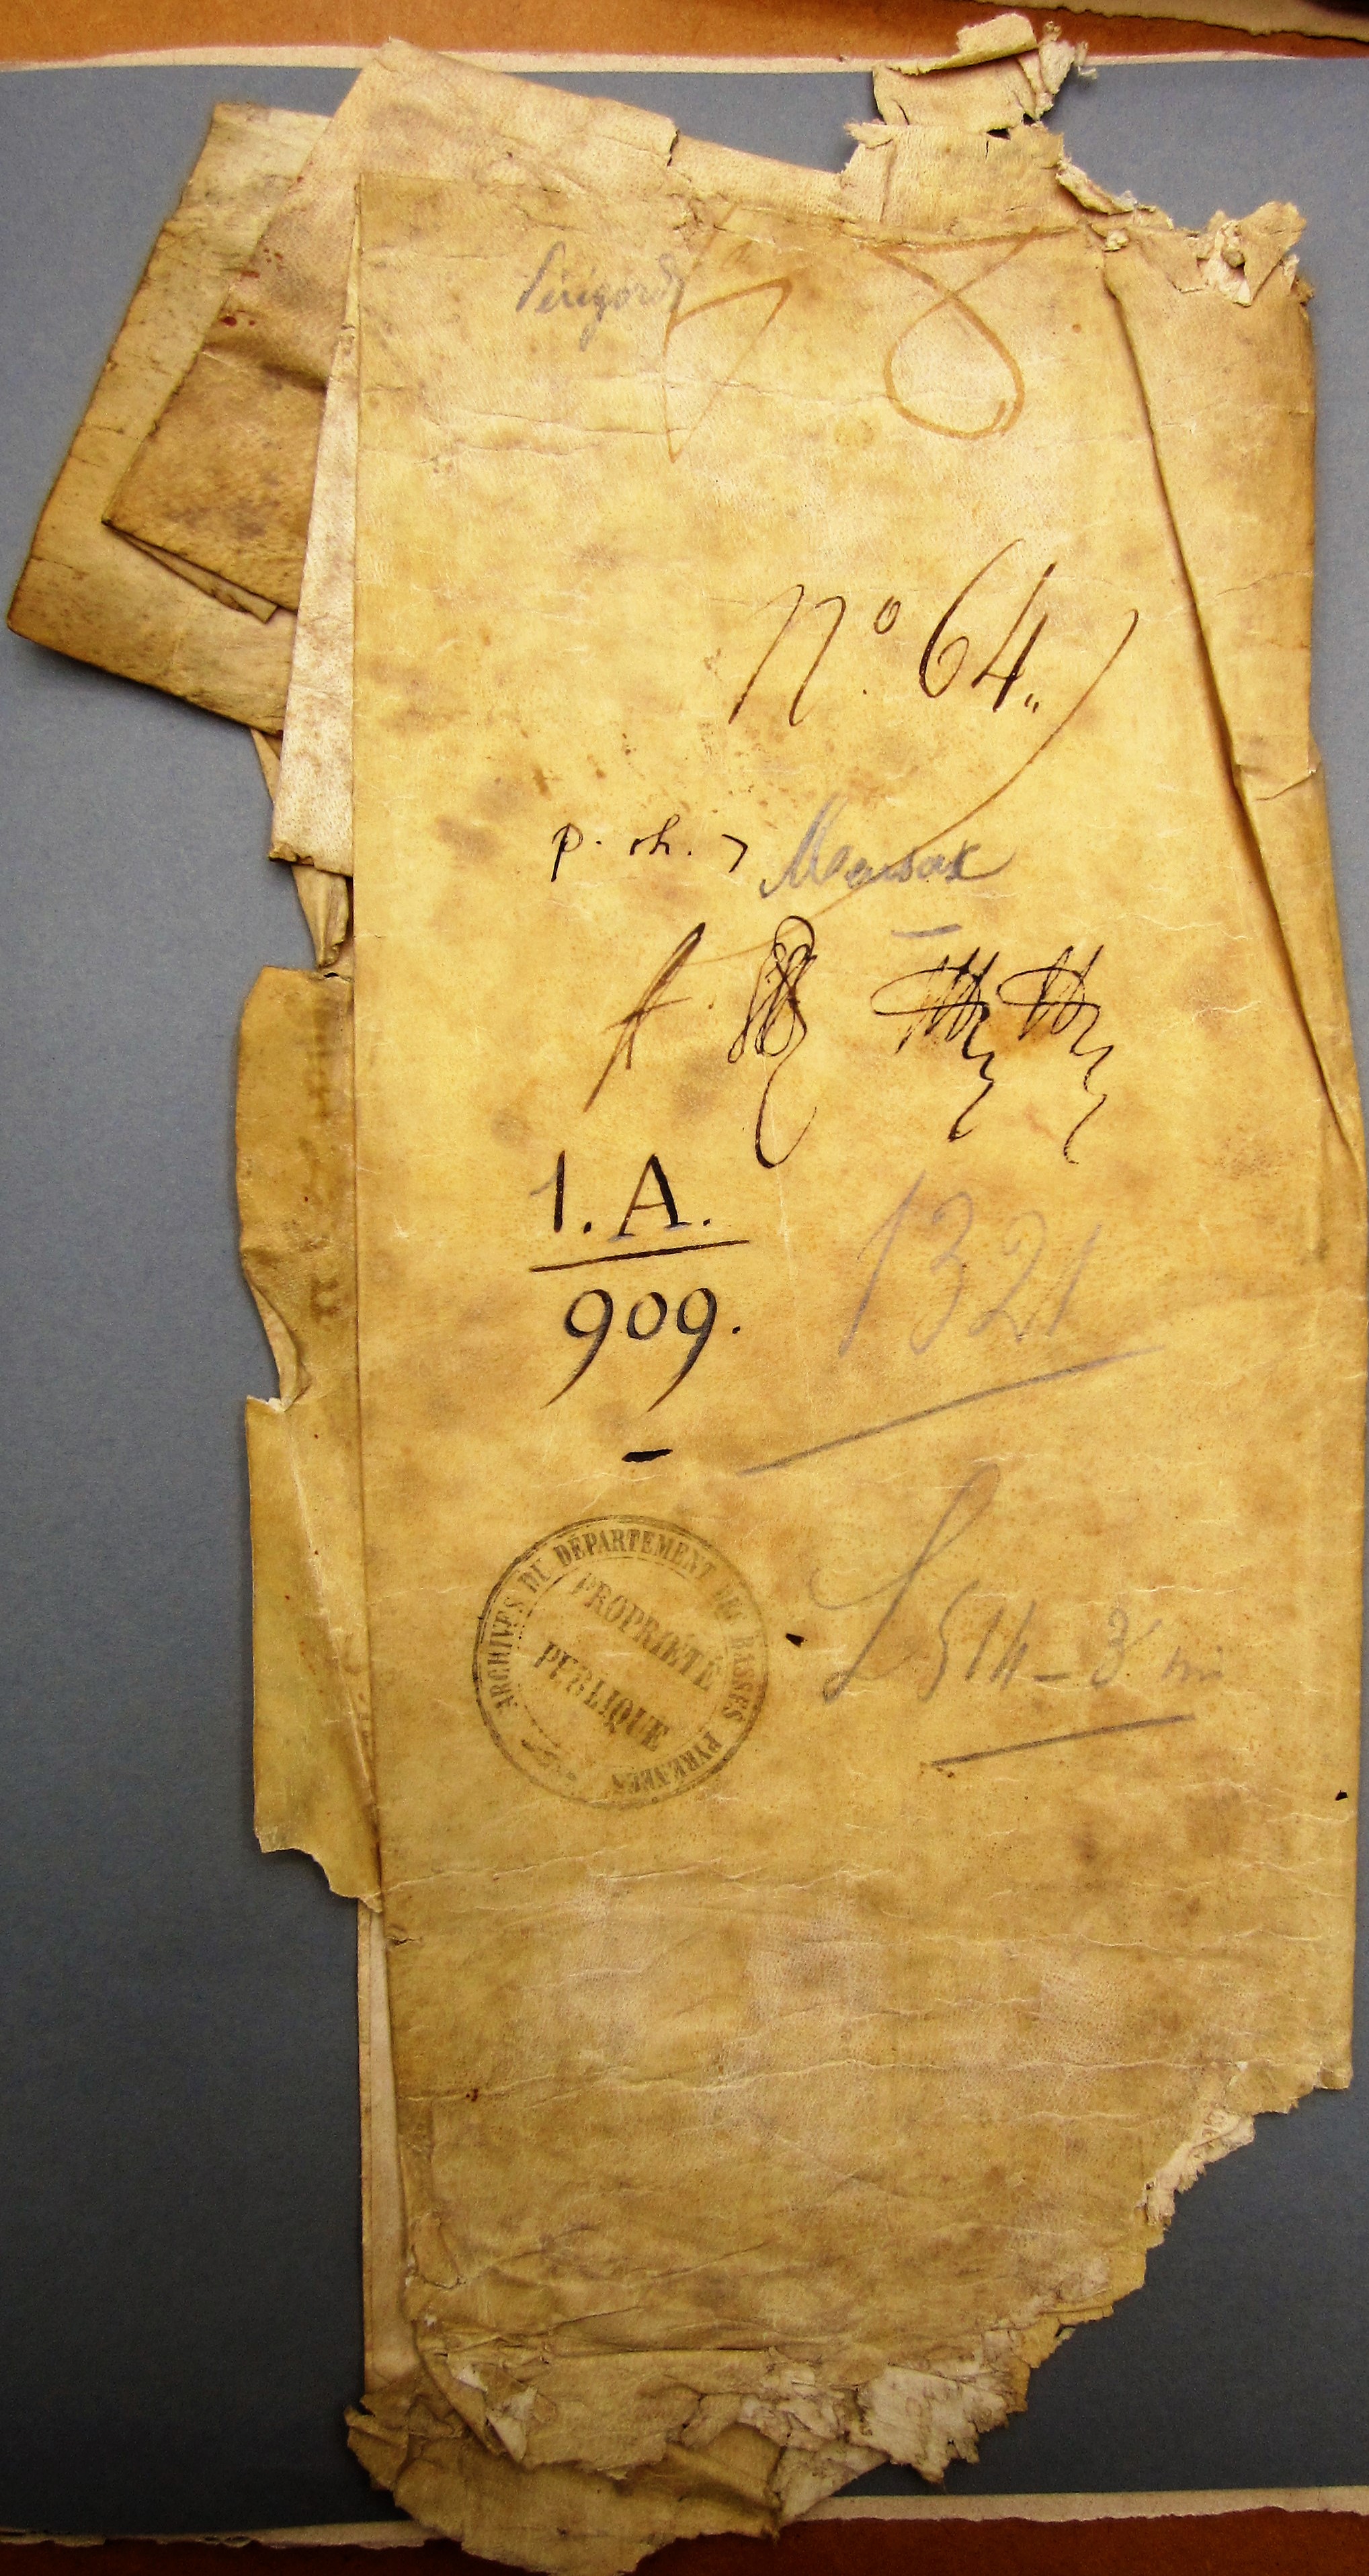 Périgord
78
n.º 64.
p. ch. 7
1. A.
909.
1321
ARCHIVES DU DÉPARTEMENT DES BASSES PYRÉNÉES
PROPRIÉTÉ
PUBLIQUE